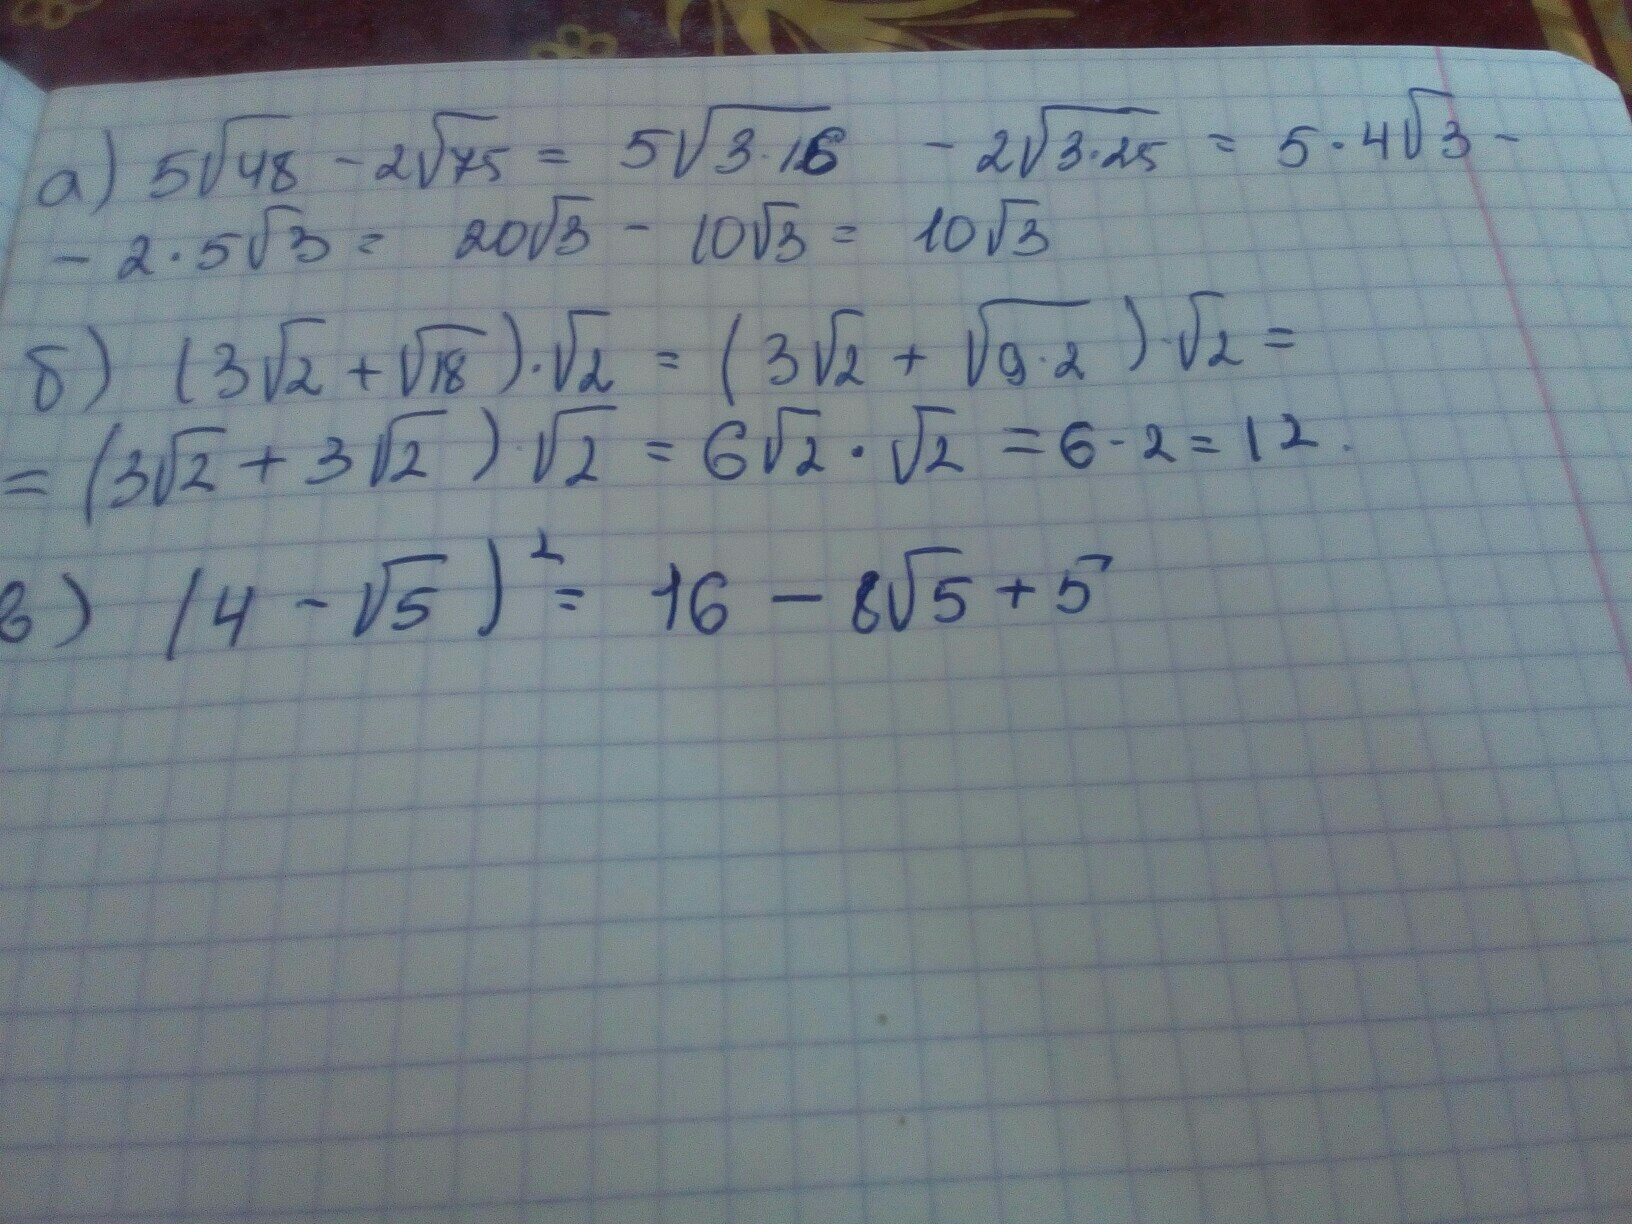 а) 5√48 - 2√75 = 5√3·16 - 2√3·25 = 5·4√3 -
- 2·5√3 = 20√3 - 10√3 = 10√3
б) (3√2 + √18)·√2 = (3√2 + √9·2)·√2 =
= (3√2 + 3√2)·√2 = 6√2·√2 = 6·2 = 12.
в) (4 - √5)² = 16 - 8√5 + 5